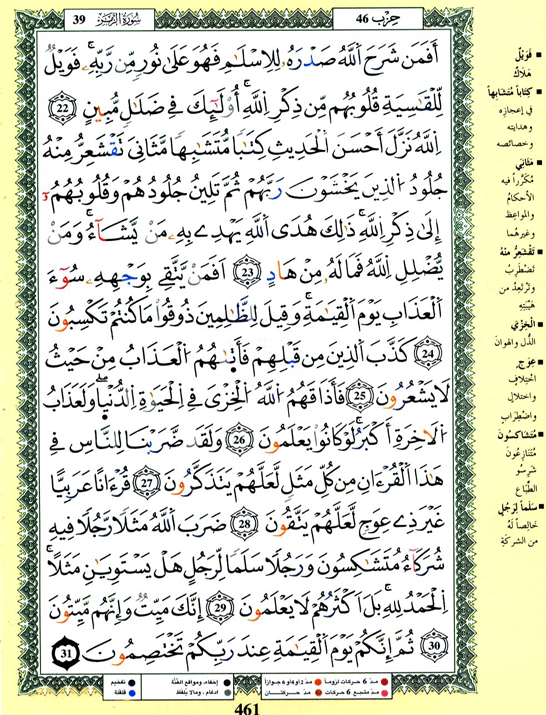 حِزْب 46
سُورَةُ الزُّمَر 39
أَفَمَن شَرَحَ اَللَّهُ صَدْرَهُۥ لِلِاسْلَٰمِ فَهُوَ عَلَىٰ نُورٍ مِّن رَّبِّهِۦۚ فَوَيْلٌ
لِّلْقَٰسِيَةِ قُلُوبُهُم مِّن ذِكْرِ اِللَّهِۚ أُوْلَٰٓئِكَ فِے ضَلَٰلٍ مُّبِينٍ 22
اِللَّهُ نَزَّلَ أَحْسَنَ اَلْحَدِيثِ كِتَٰبًا مُّتَشَٰبِهًا مَّثَانِيَ تَقْشَعِرُّ مِنْهُ
جُلُودُ اُلذِينَ يَخْشَوْنَ رَبَّهُمْ ثُمَّ تَلِينُ جُلُودُهُمْ وَقُلُوبُهُمُۥٓ
إِلَىٰ ذِكْرِ اِللَّهِۚ ذَٰلِكَ هُدَى اَللَّهِ يَهْدِے بِهِۦ مَنْ يَّشَآءُۚ وَمَنْ
يُّضْلِلِ اِللَّهُ فَمَا لَهُۥ مِنْ هَادٍ 23 اَفَمَنْ يَّتَّقِے بِوَجْهِهِۦ سُوٓءَ
اَلْعَذَابِ يَوْمَ اَلْقِيَٰمَةِۚ وَقِيلَ لِلظَّٰلِمِينَ ذُوقُواْ مَا كُنتُمْ تَكْسِبُونَ
24 كَذَّبَ اَلذِينَ مِن قَبْلِهِمْ فَأَتَىٰهُمُ اُلْعَذَابُ مِنْ حَيْثُ
لَا يَشْعُرُونَ 25 فَأَذَاقَهُمُ اُللَّهُ اُلْخِزْيَ فِے اِلْحَيَوٰةِ اِلدُّنْيَاۖ وَلَعَذَابُ
اُلَاخِرَةِ أَكْبَرُۚ لَوْ كَانُواْ يَعْلَمُونَ 26 وَلَقَد ضَّرَبْنَا لِلنَّاسِ فِے
هَٰذَا اَلْقُرْءَانِ مِن كُلِّ مَثَلٍ لَّعَلَّهُمْ يَتَذَكَّرُونَ 27 قُرْءَاناً عَرَبِيًّا
غَيْرَ ذِے عِوَجٍ لَّعَلَّهُمْ يَتَّقُونَ 28 ضَرَبَ اَللَّهُ مَثَلًا رَّجُلًا فِيهِ
شُرَكَآءُ مُتَشَٰكِسُونَ وَرَجُلًا سَلَمًا لِّرَجُلٍ هَلْ يَسْتَوِيَٰنِ مَثَلًاۚ
اِلْحَمْدُ لِلهِۚ بَلَ اَكْثَرُهُمْ لَا يَعْلَمُونَ 29 إِنَّكَ مَيِّتٌ وَإِنَّهُم مَّيِّتُونَ
30 ثُمَّ إِنَّكُمْ يَوْمَ اَلْقِيَٰمَةِ عِندَ رَبِّكُمْ تَخْتَصِمُونَ 31
■ فَوَيْلٌ
هَلَاكٌ
■ كِتَاباً مُتَشَابِهاً
في إعجازِه
وهدايتِه
وخصائصِه
■ مَثَانِيَ
مُكَرَّراً فيه
الأحكامُ
والمواعظُ
وغيرهُما
■ تَقْشَعِرُّ مِنْهُ
تَضْطَرِبُ
وتَرْتَعِدُ من
هَيْبَتِهِ
■ الْخِزْيَ
الذُّلَّ والهوانَ
■ عِوَجٍ
اختِلافٍ
واختلالٍ
واضْطِرابٍ
■ مُتَشَاكِسُونَ
مُتَنَازِعُونَ
شَرِسُو
الطِّبَاعِ
■ سَلَماً لِرَجُلٍ
خَالِصاً لَهُ
من الشركةِ
● مدّ 6 حركات لزوماً ● مدّ 2 أو 4 أو 6 جوازاً ● إخفاء، ومواقع الغُنَّة ● تفخيم
● مدّ مشبع 6 حركات ● مدّ حركتان ● ادغام، وما لا يُلفظ ● قلقلة
461